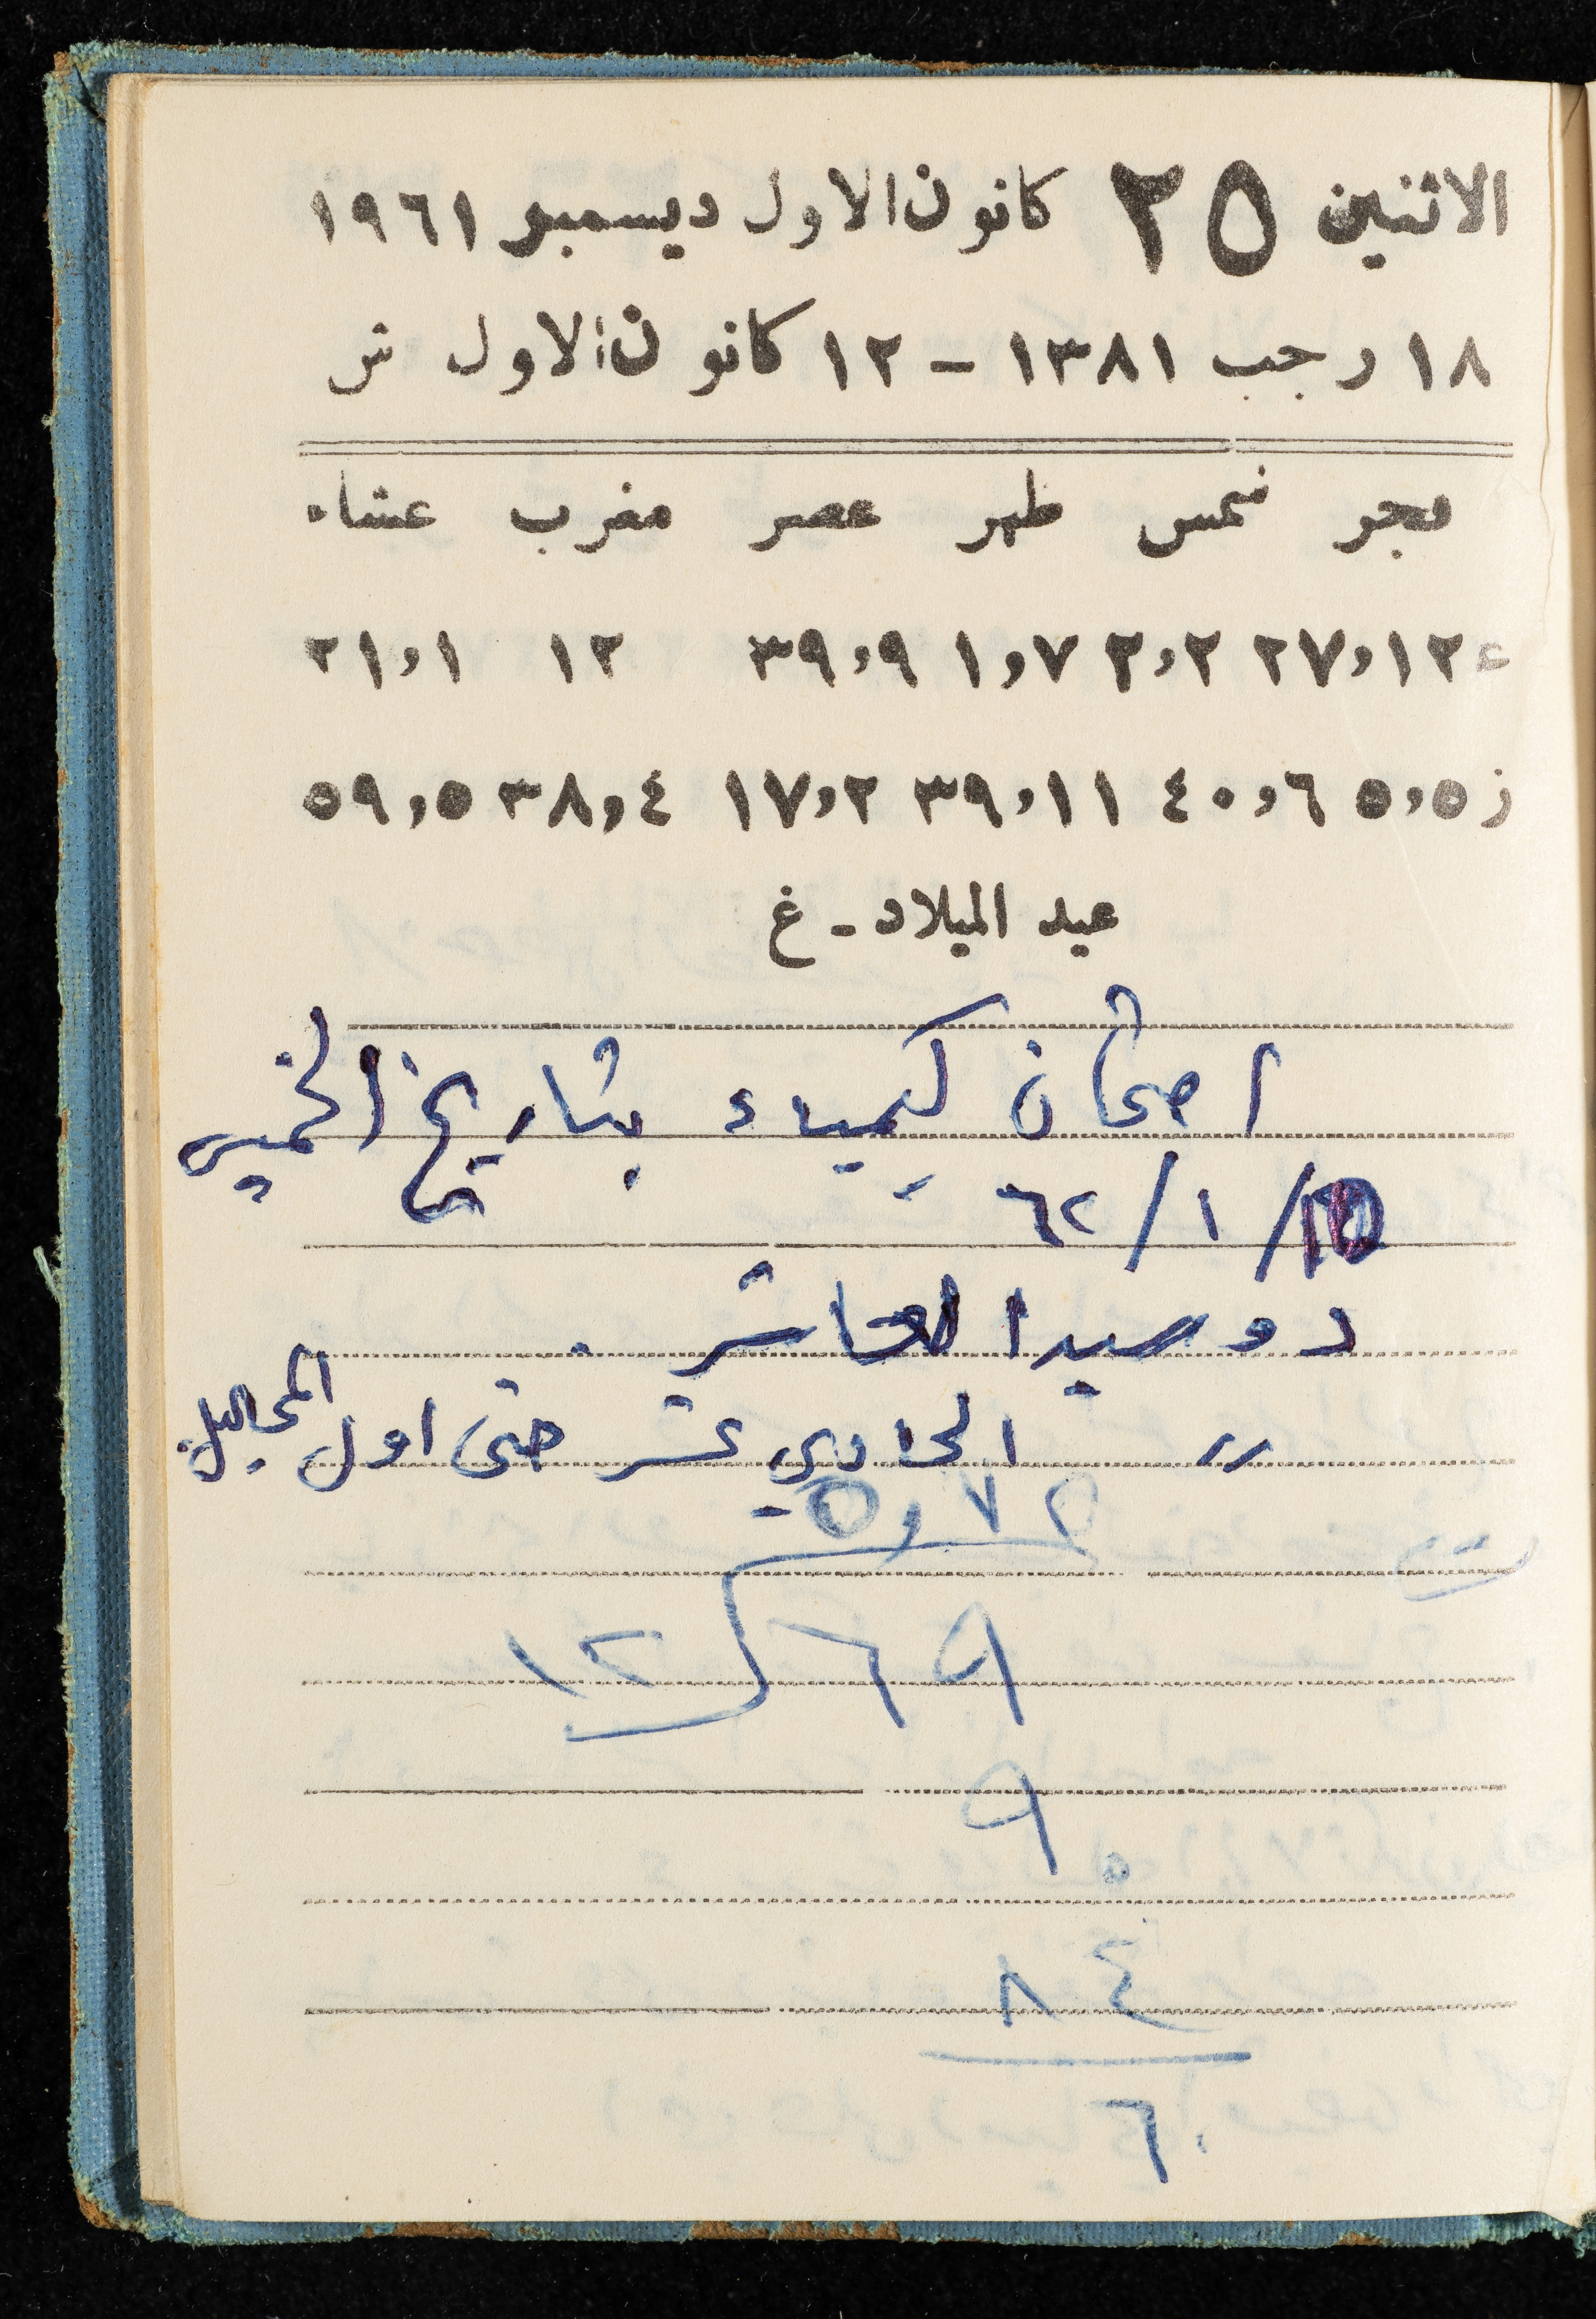 الاثنين ٢٥ كانون الاول ديسمبر ١٩٦١
١٨ رجب ١٣٨١ - ١٢ كانون الاول ش
فجر شمس ظهر عصر مغرب عشاء
ع ٢٧,١٢ ٢,٢ ١,٧ ٣٩,٩ ١٢ ٢١,١
ز ٥,٥ ٤٠,٦ ٣٩,١١ ١٧,٢ ٣٨,٤ ٥٩,٥
عيد الميلاد - غ
امتحان كيمياء بتاريخ الخميس
/١/٦٢
دوسيه العاشر .
〃 الحادي عشر حتى اول المحاليل.
٥,٧٥
١٢ ٦٩
٩٠
٨٤
٦٠